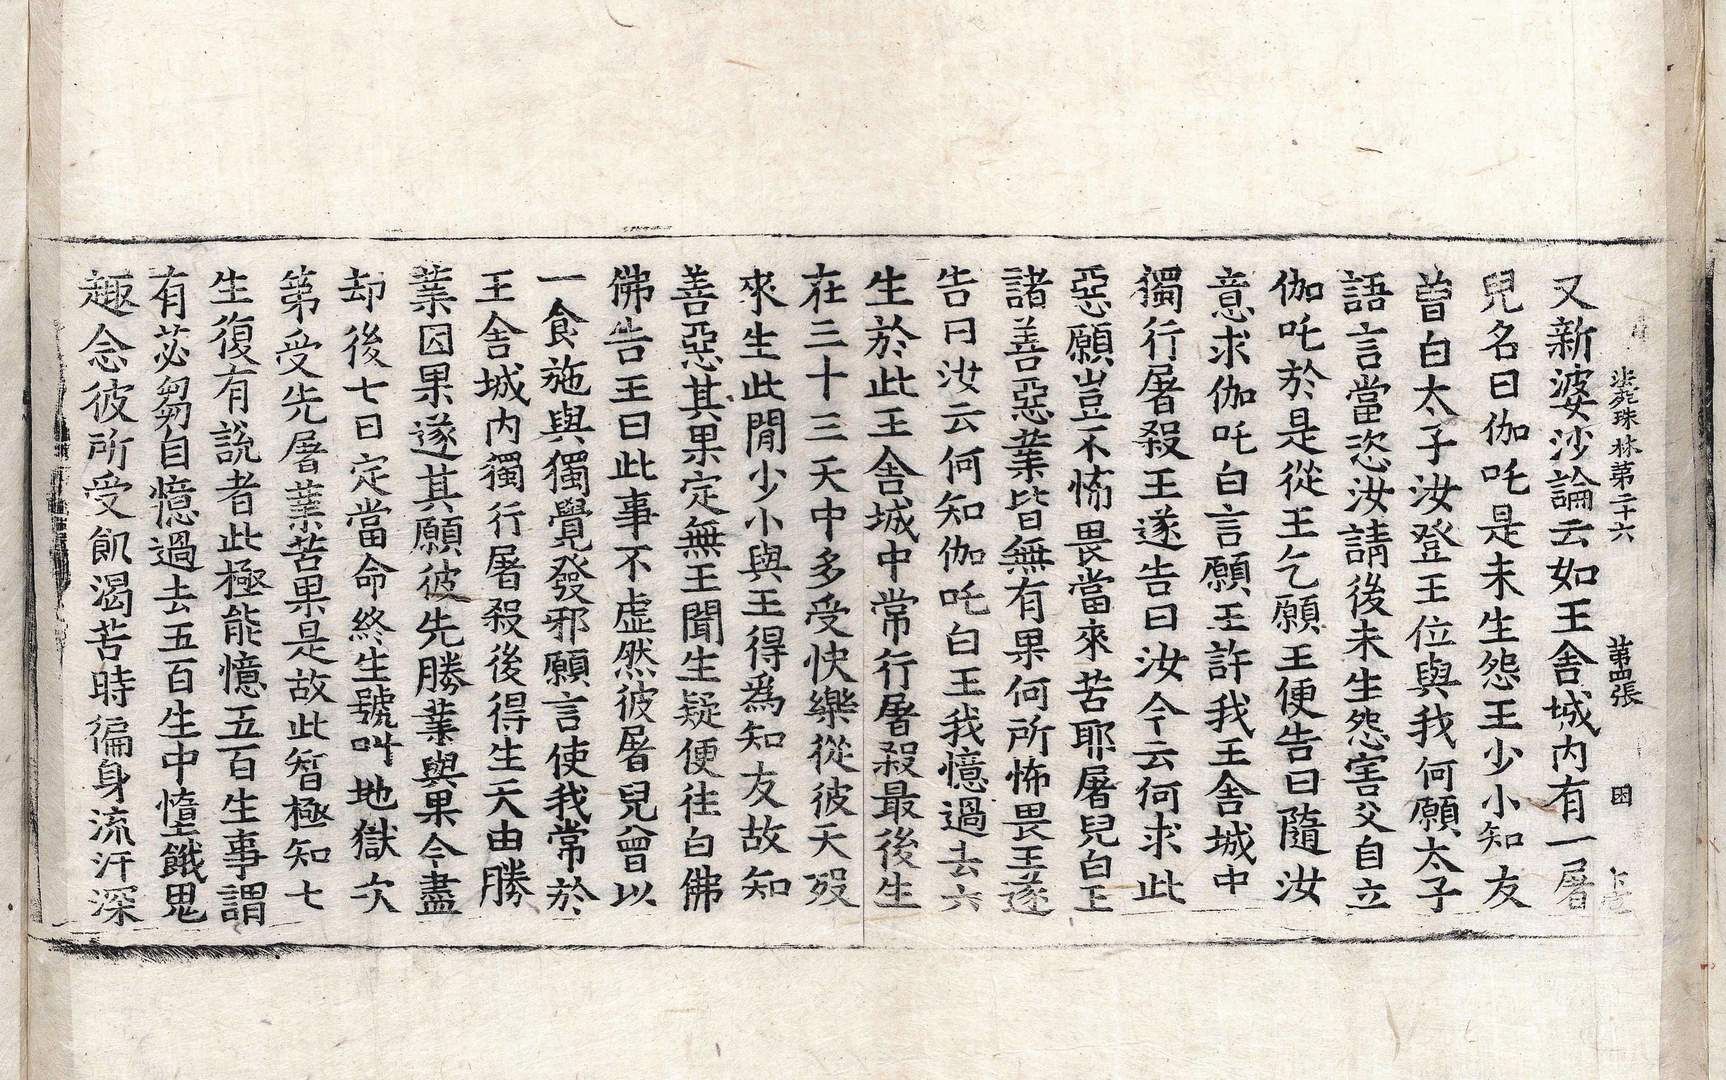 珠林第二十六 第四張 因
又新婆沙論云如王舍城內有一屠
兒名曰伽吒是未生怨王少小知友
曾白太子汝登王位與我何願太子
語言當恣汝請後未生怨害父自立
伽吒於是從王乞願王便告曰隨汝
意求伽吒白言願王許我王舍城中
獨行屠殺王遂告曰汝今云何求此
惡願豈不怖畏當來苦耶屠兒白王
諸善惡業皆無有果何所怖畏王遂
告曰汝云何知伽吒白王我憶過去六
生於此王舍城中常行屠殺最後生
在三十三天中多受快樂從彼天歿
來生此閒少小與王得為知友故知
善惡其果定無王聞生疑便往白佛
佛告王曰此事不虛然彼屠兒曾以
一食施與獨覺發邪願言使我常於
王舍城內獨行屠殺後得生天由勝
業因果遂其願彼先勝業與果今盡
却後七日定當命終生號叫地獄次
第受先屠業苦果是故此智極知七
生復有說者此極能憶五百生事謂
有苾芻自憶過去五百生中墮餓鬼
趣念彼所受飢渴苦時徧身流汗深